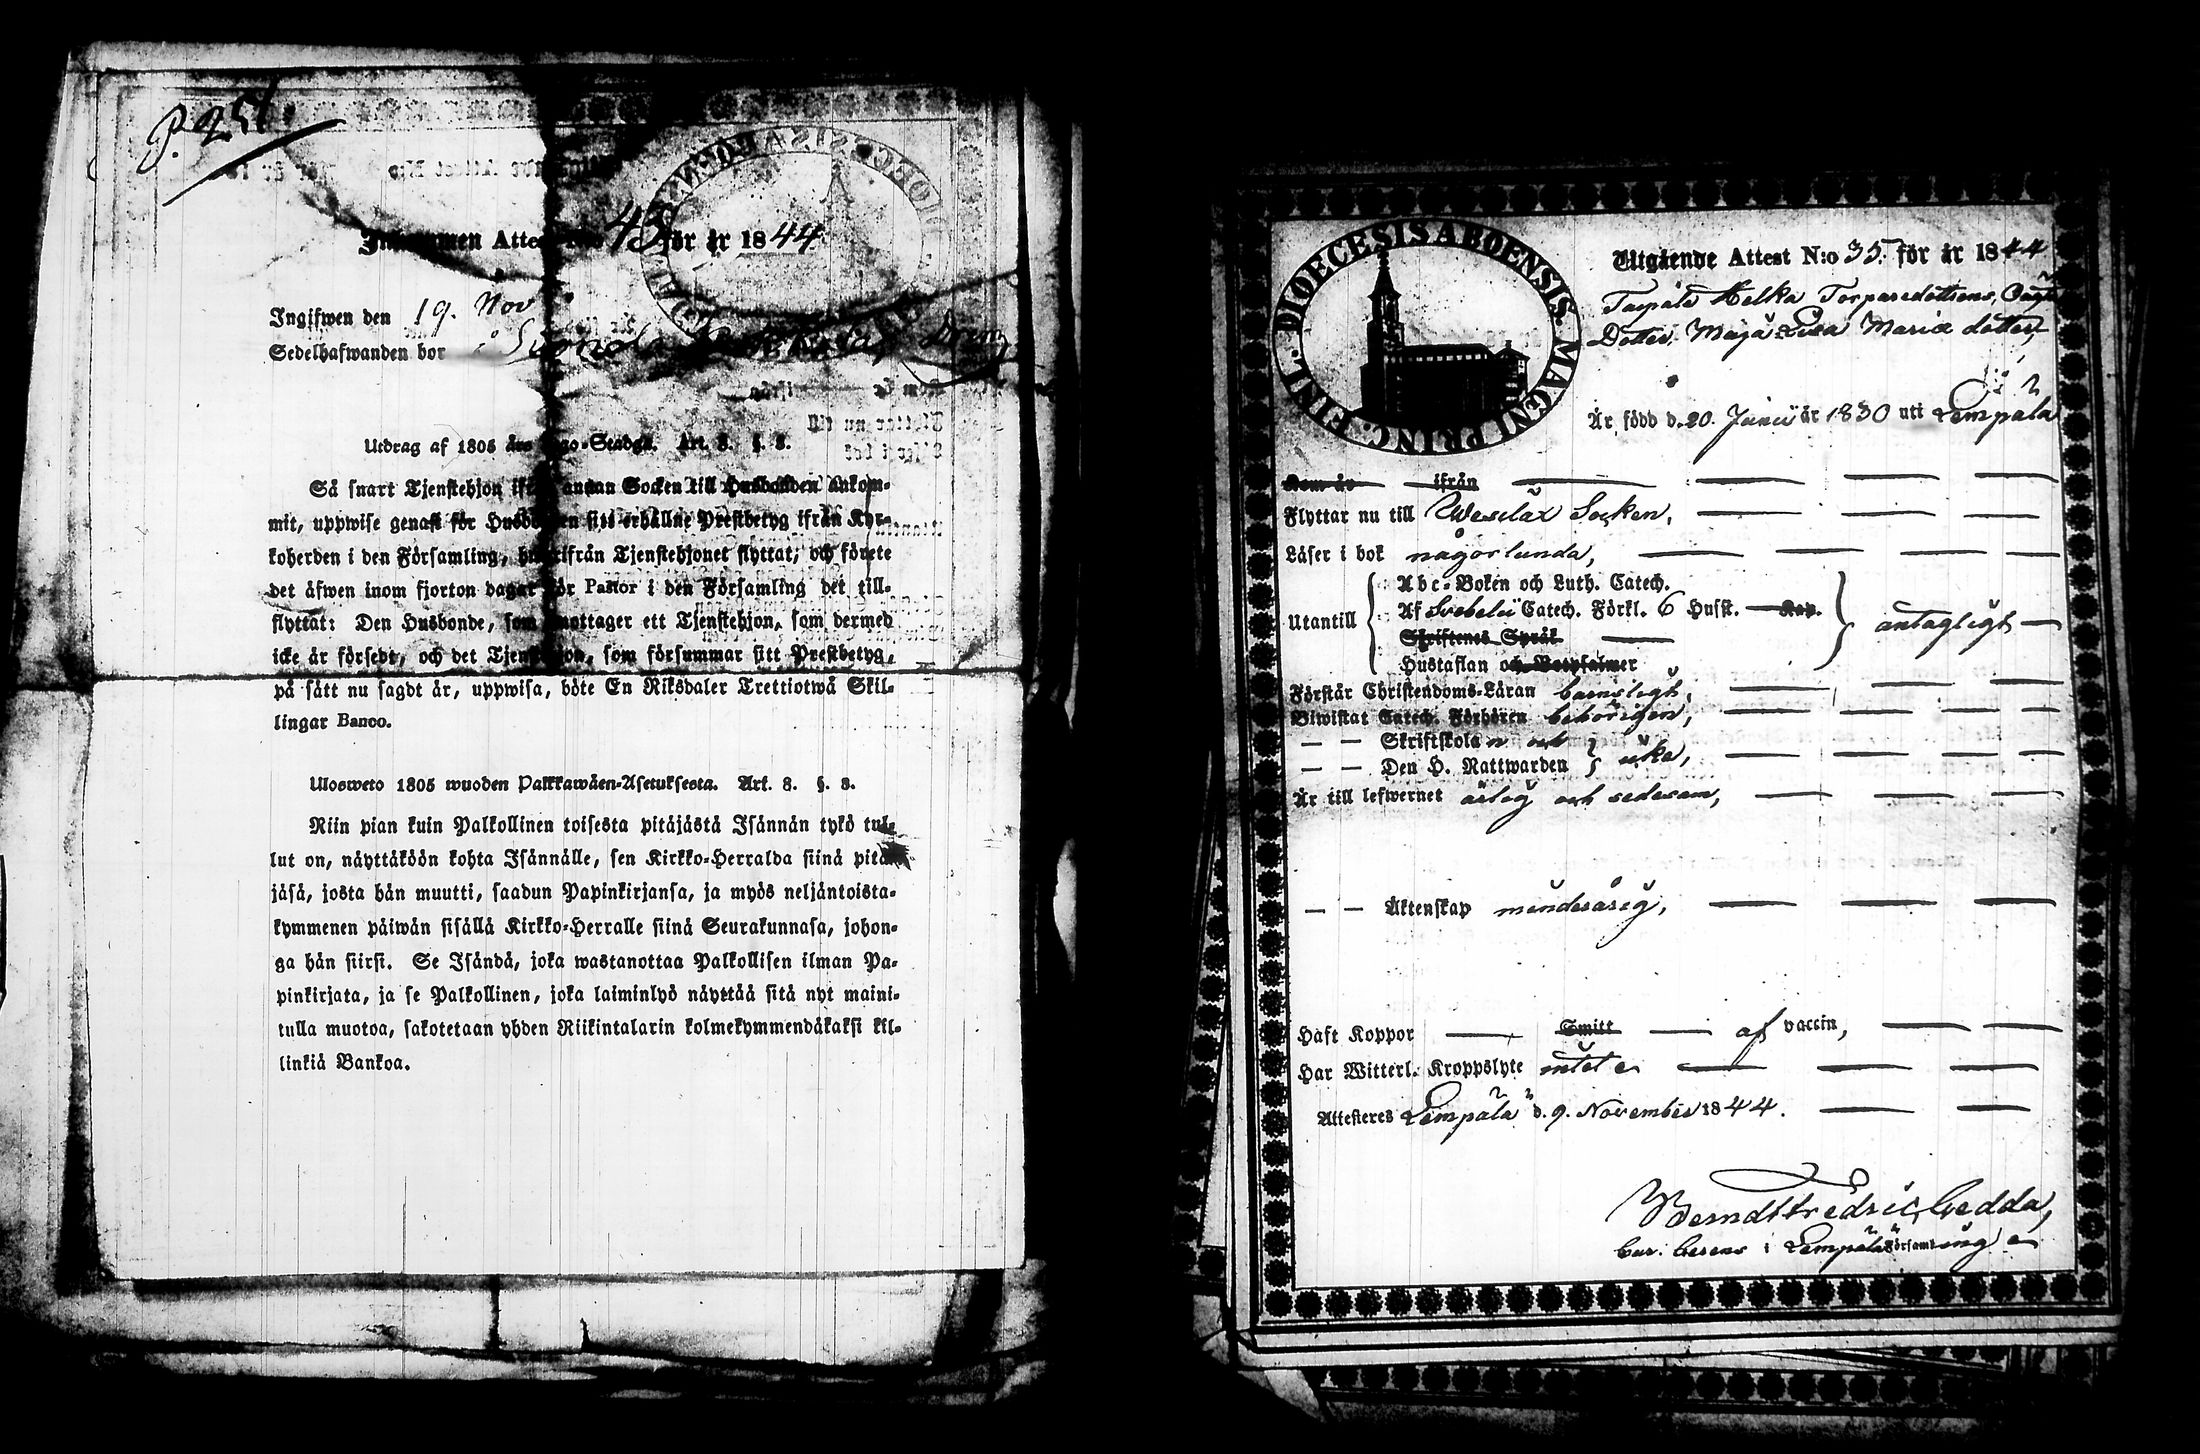 P. 251.
Inkommen Attest N:o 45 för år 1844
Ingifwen den 19. Nov
Sedelhafwanden bor i
Utdrag af 1805 års Lego-Stadga. Art. 8. §. 8.
Så snart Tjenstehjon ifrån annan Socken till Husbonden ankom-
mit, uppwise genast för Husbonden sitt erhållne Prestbetyg ifrån Kyr-
koherden i den Församling, hwarifrån Tjenstehjonet flyttat; och förete
det äfwen inom fjorton dagar för Pastor i den Församling det till-
flyttat: Den Husbonde, som emottager ett Tjenstehjon, som dermed
icke är försedt, och det Tjenstehjon, som försummar sitt Prestbetyg,
på sätt nu sagdt är, uppwisa, böte En Riksdaler Trettiotwå Skil-
lingar Banco.
Ulosweto 1805 wuoden Palkkawäen-Asetuksesta. Art. 8. §. 8.
Niin pian kuin Palkollinen toisesta pitäjästä Isännän tykö tul-
lut on, näyttäköön kohta Isännälle, sen Kirkko-Herralda siinä pitä-
jäsä, josta hän muutti, saadun Papinkirjansa, ja myös neljäntoista-
kymmenen päiwän sisällä Kirkko-Herralle siinä Seurakunnasa, johon-
ga hän siirsi. Se Isändä, joka wastanottaa Palkollisen ilman Pa-
pinkirjata, ja se Palkollinen, joka laiminlyö näyttää sitä nyt maini-
tulla muotoa, sakotetaan yhden Riikintalarin kolmekymmendäkaksi kil-
linkiä Bankoa.
DIOECESIS ABOENSIS. MAGNI PRINC. FINL.
Utgående Attest N:o 35. för år 1844
Helka Torparedottrens,
Dotter, Maja Lisa Mariæ dotter,
Är född d. 20. Junii år 1830 uti Lempäla
Kom år ifrån
Flyttar nu till Wesilax Socken,
Läser i bok någorlunda,
Utantill
Abc-Boken och Luth. Catech.
Af Svebelii Catech. Förkl. 6 Hufst. Kap.
Skriftenes Språk
Hustaflan och Botpsalmer
antagligt
Förstår Christendoms-Läran barnsligt,
Biwistat Catech. Förhören behörigen,
— — Skriftskolan och
— — Den H. Nattwarden
icke,
Är till lefwernet ärlig och sedesam,
— — Äktenskap minderårig,
Haft Koppor Smitt af vaccin,
Har Witterl. Kroppslyte intet
Attesteres Lempäla d. 9. November 1844.
Berndt Fredric Gedda,
i Lempäla Församling